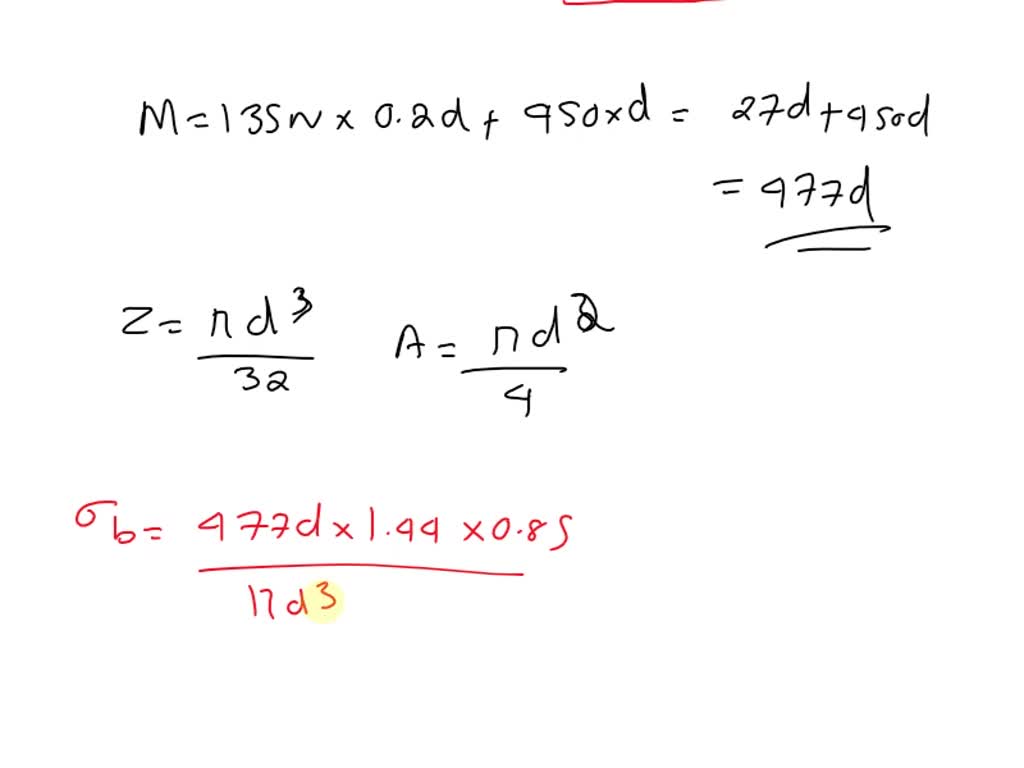 M = 135N × 0.2d + 450×d = 27d + 450d
= 477d
Z = πd³ A = πd²
32 4
σb = 477d × 1.44 × 0.85
πd³